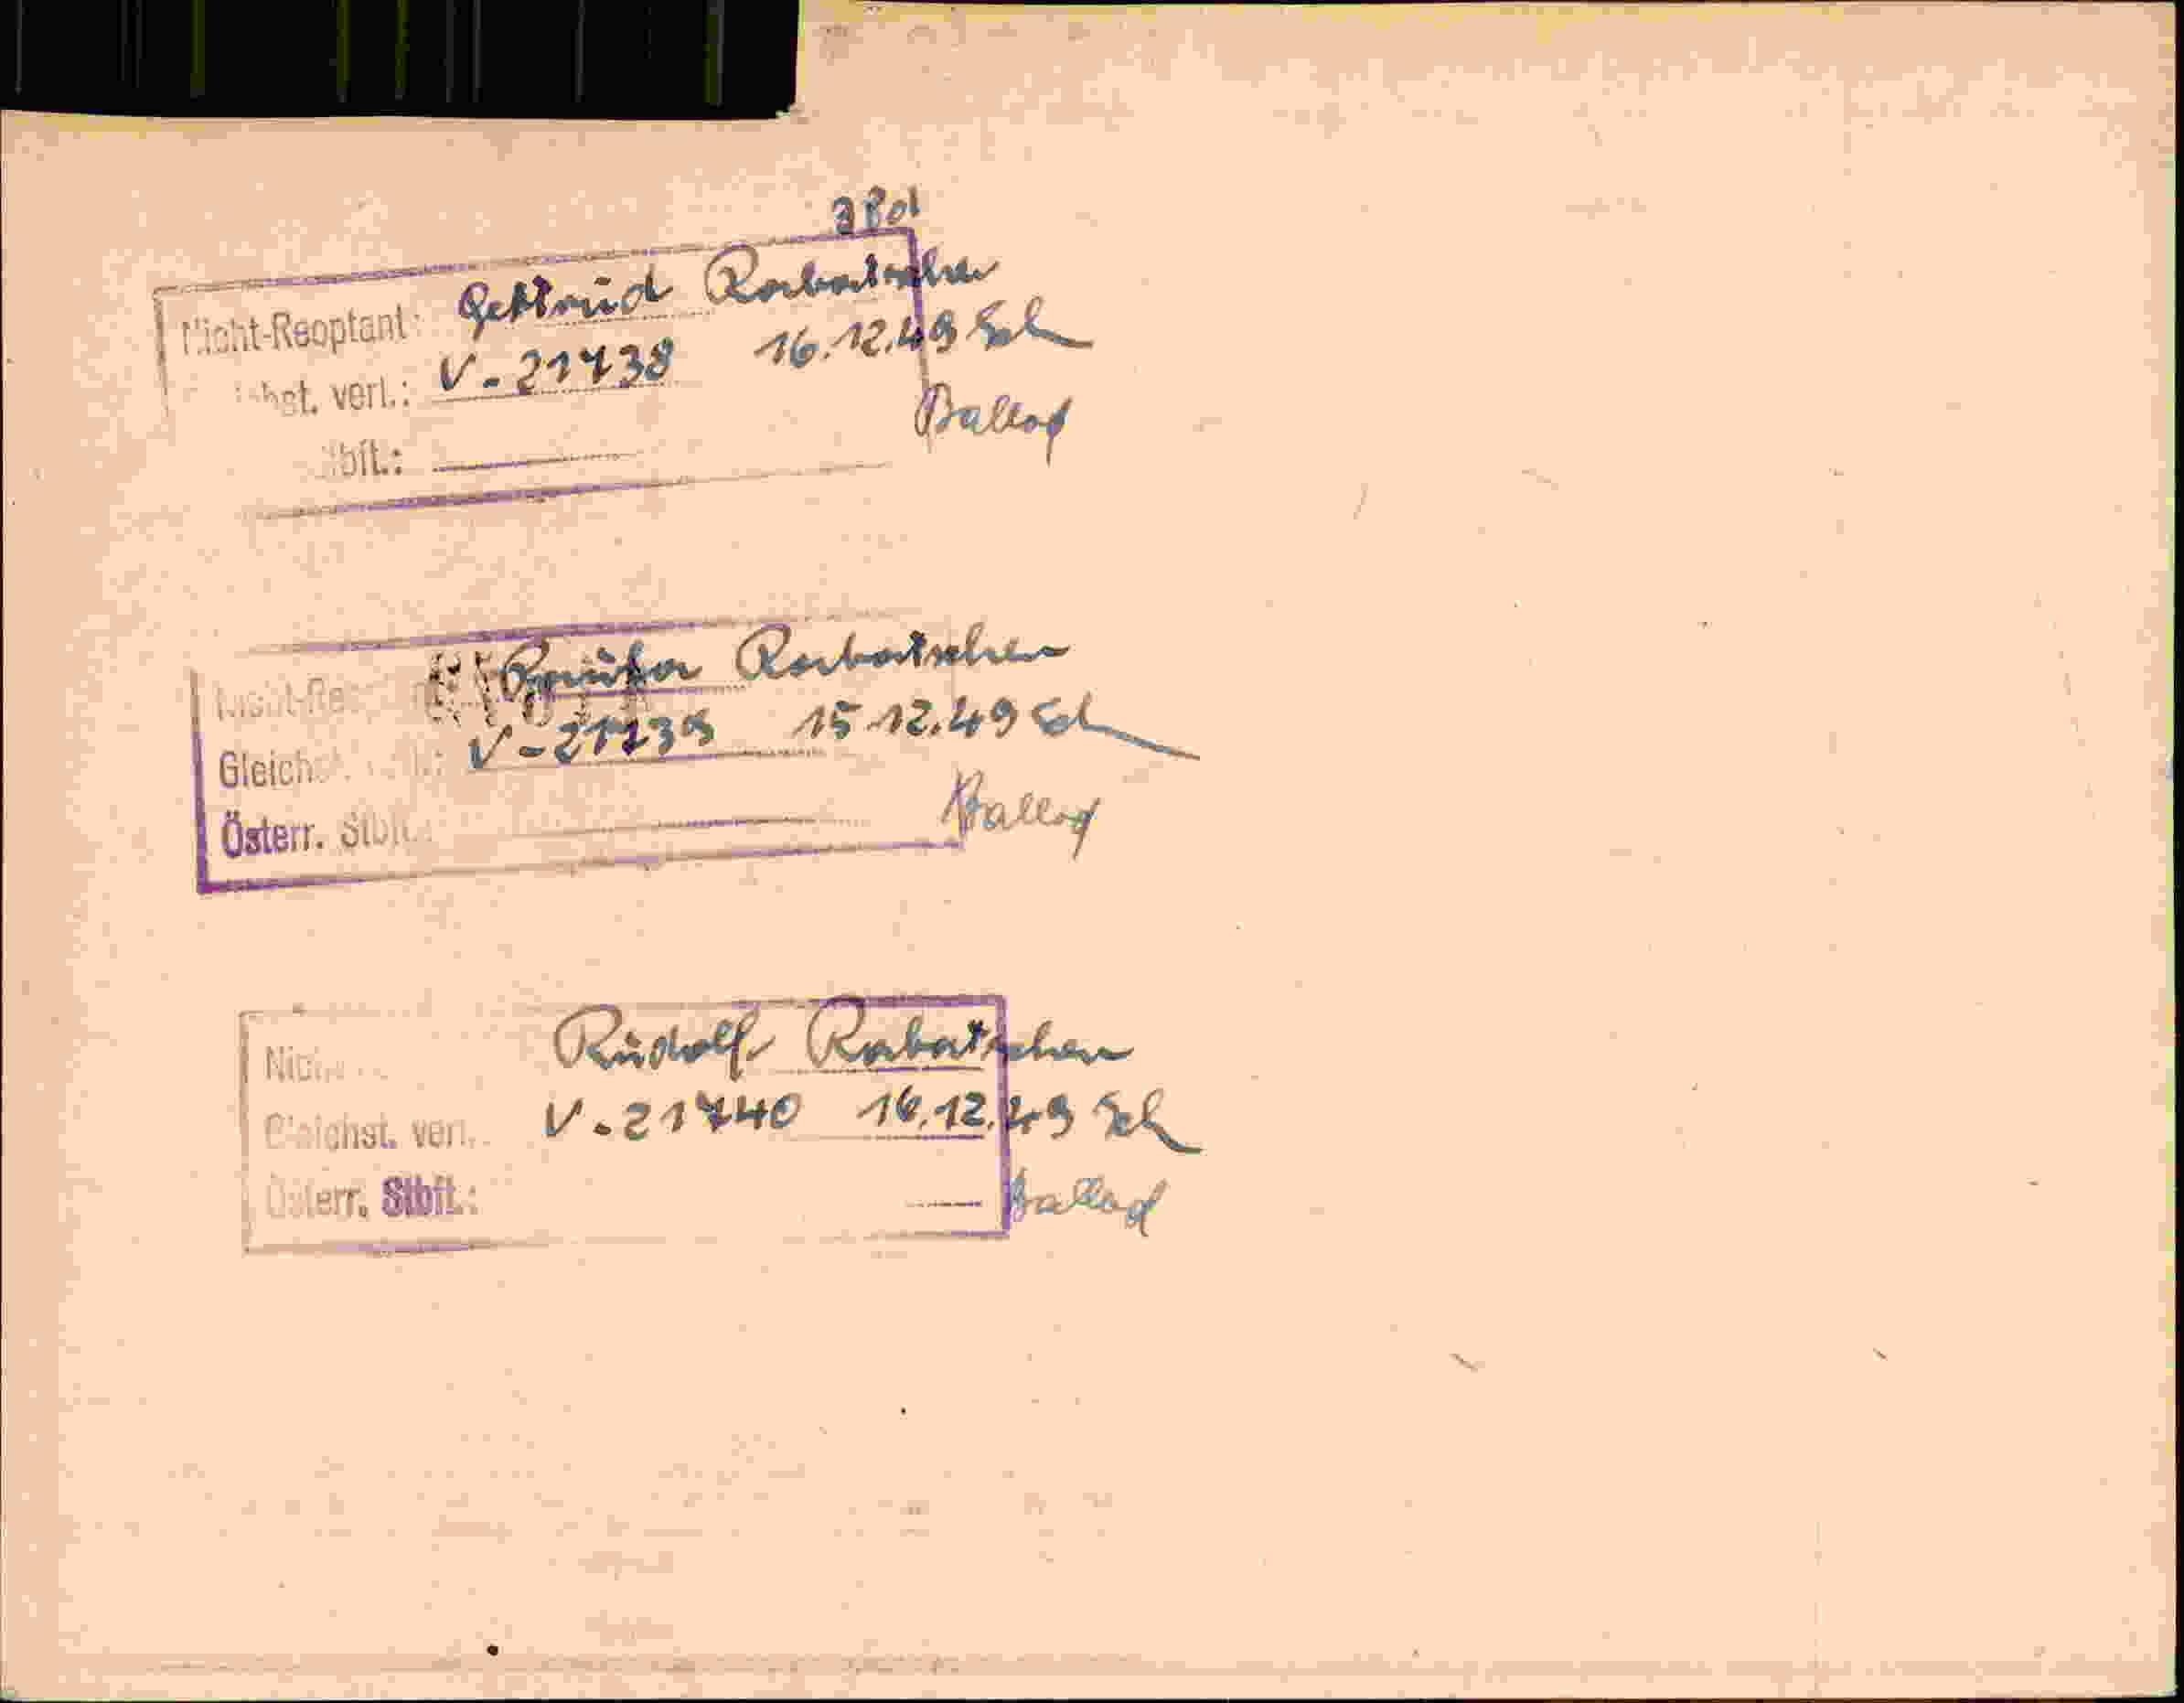 Nicht-Reoptant: Gertraud Rabatscher
chst. verl.: V-21738 16.12.49 Sch
Stbft.: Ballod
Rabatscher
Gleich V-21739 15.12.49 Sch
Österr. Stbft.: Ballod
Rudolf Rabatscher
Gleichst. verl. V-21740 16.12.49 Sch
Österr. Stbft.: Ballod